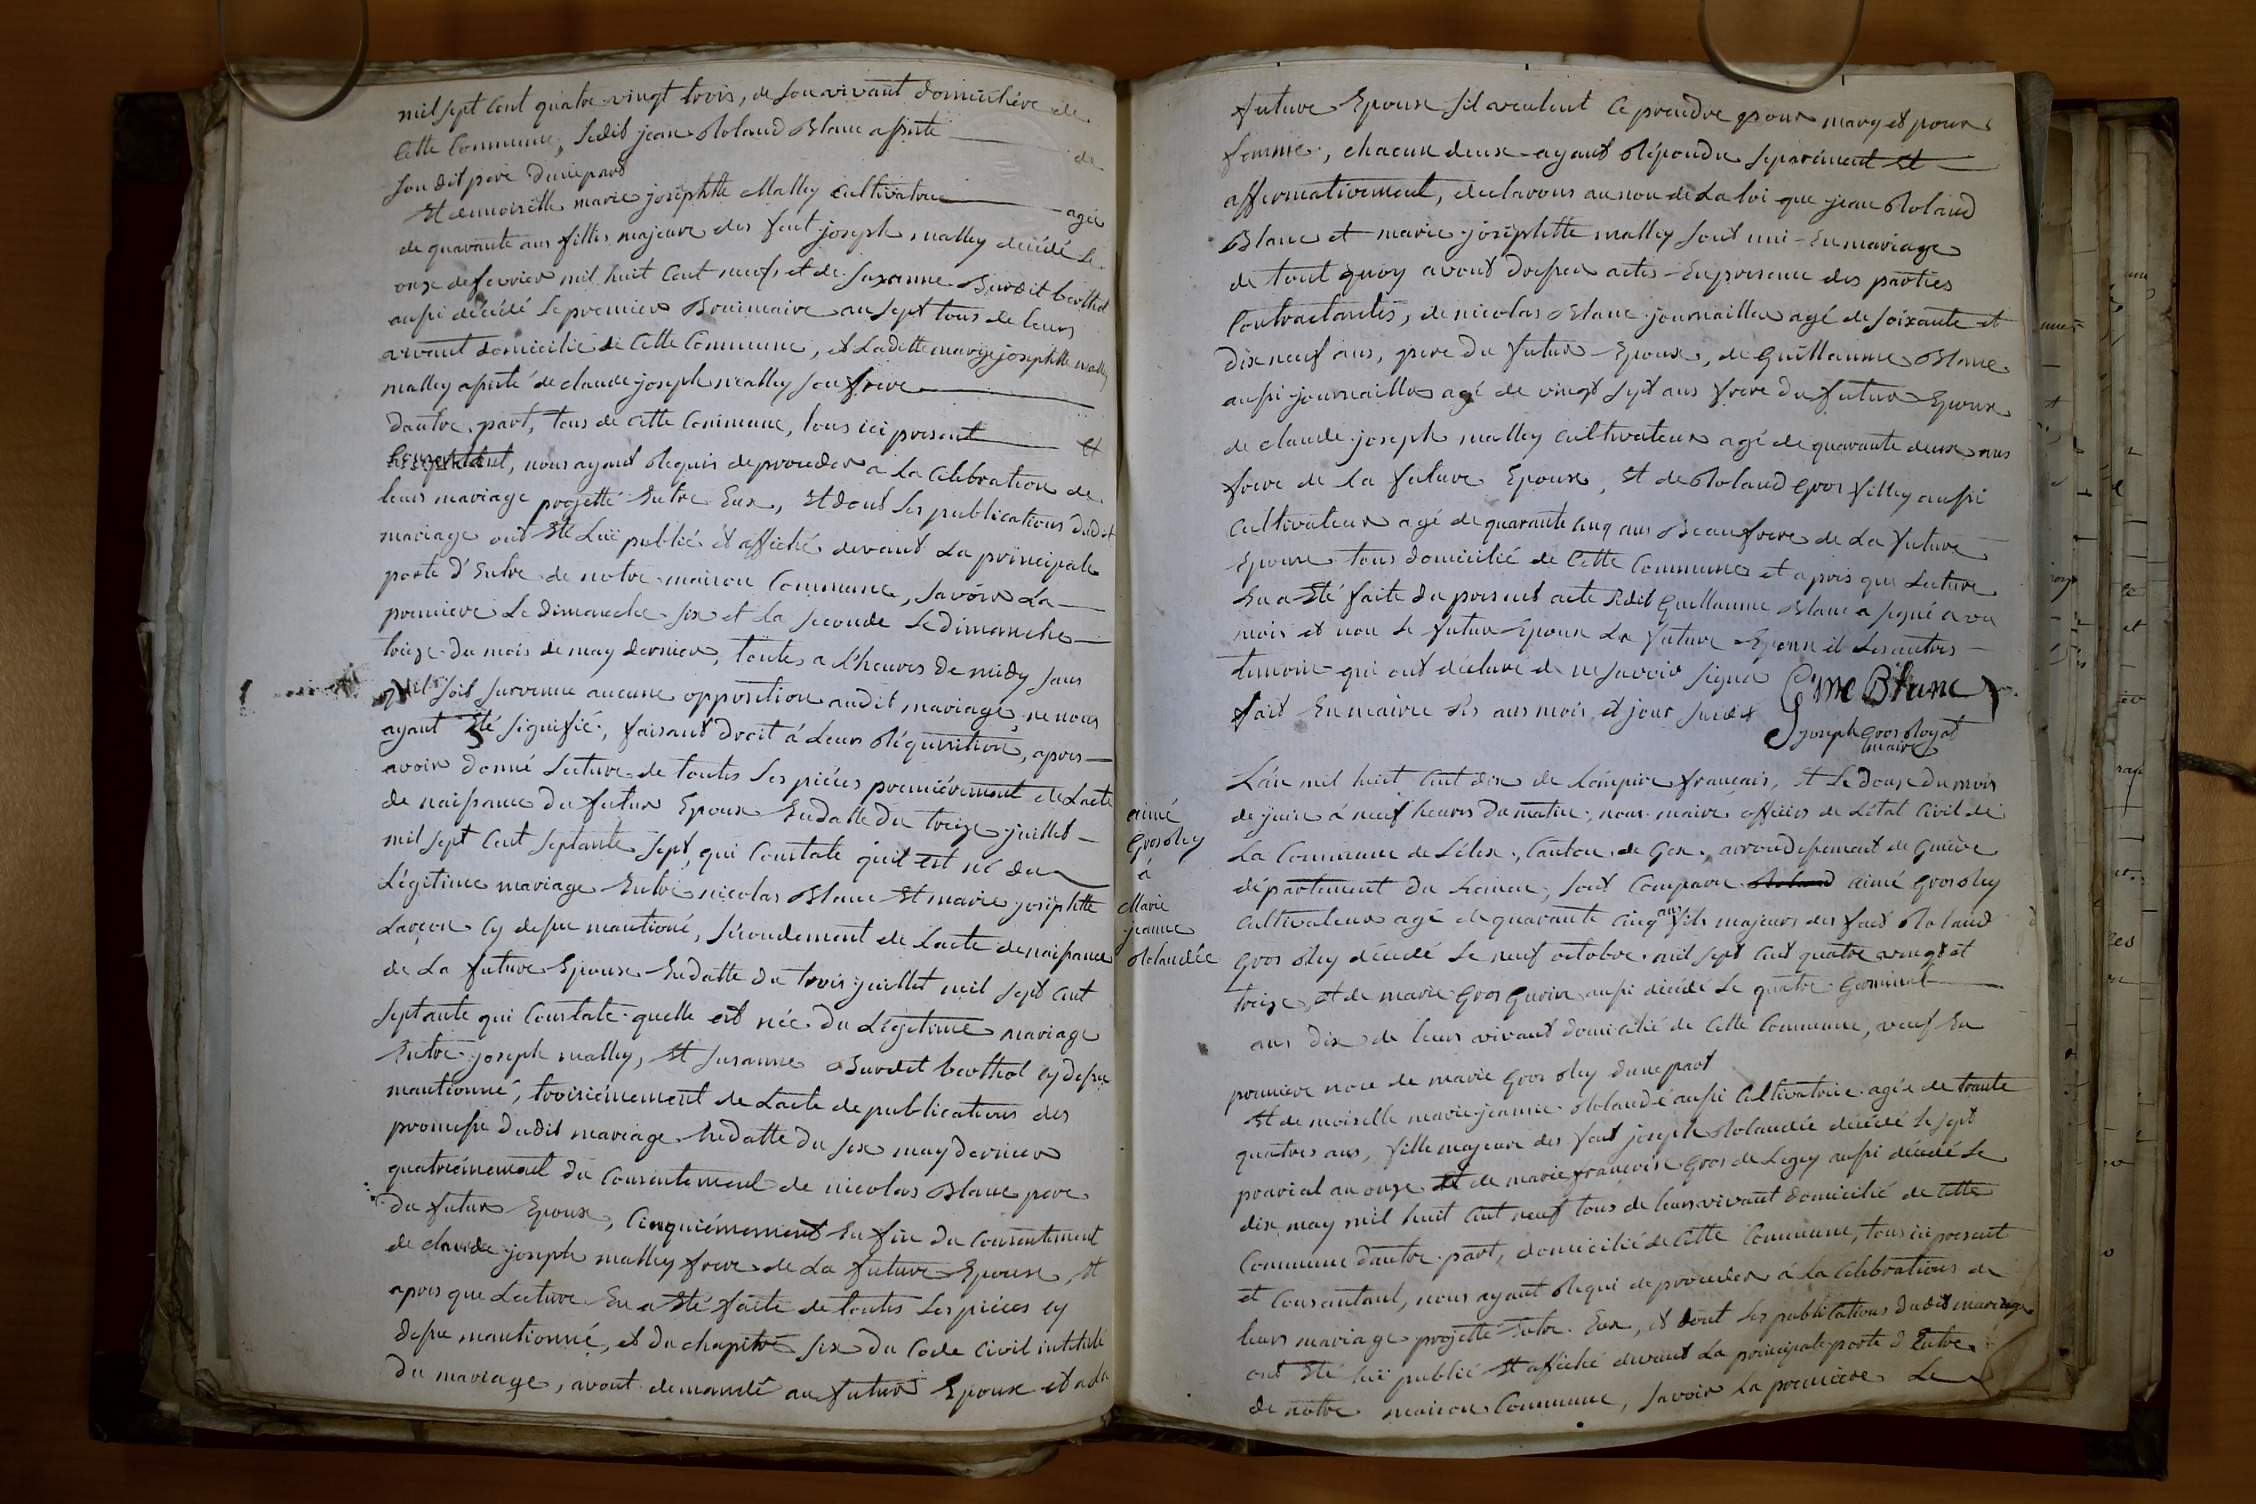 mil sept Cent quatre vingt trois, de Son vivant domiciliére de
Cette Commune, Ledit jean Roland Blanc assisté de
Son dit pere d'une part
Et demoiselle marie josephtte Malley Cultivatrice agée
de quarante ans fillis majeure des feut joseph malley décédé Le
onze de fevrier mil huit Cent neuf, et de Suzanne Burdet berthet
aussi décédé Le premier Brumaire an sept tous de leurs
vivant domicilié de Cette Commune, et Laditte marie josephtte malley
malley assisté de claude joseph malley son frere
dautre part, tous de Cette Commune, tous ici present Et
Consentant, nous ayant Requis de proceder a La Célébration de
leurs mariage projetté Entre Eux, Et dont Les publications dudit
mariage ont Eté Luë publié et affiché devant La principale
porte d'Entre de notre maison Commune, Savoir La
premiere Le dimanche six et la seconde Le dimanche
treize du mois de may dernier, toutes a L'heures de midy sans
qu'il soit survenue aucune opposition audit mariage, ne nous
ayant Eté signifié, faisant droit á Leurs Réquisition, apres
avoir donné Lecture de toutes Les piéces premiérement de Lacte
de naissance du futur Epoux En datte du treize juillet
mil sept Cent septante sept, qui Constate qu'il est né du
Légitime mariage Entre nicolas Blanc Et marie josephtte
Lançon Cy dessu mantioné, sécondement de Lacte de naissance
de La future Epouse En datte du trois juillet mil sept Cent
septante qui Constate quelle est née du Légitime mariage
Entre joseph malley, Et Susanne Burdet berthet cy dessu
mantionné, troisiémement de Lacte de publications des
promesse dudit mariage En datte du six may dernier
quatriémement du Consentement de nicolas Blanc pere
du futur Epoux, Cinquiémement En fin du Consentement
de claude joseph malley frere de La future Epouse, Et
apres que Lecture En a Eté faite de toutes Les piéces cy
dessu mantionné, et du chapitre six du Code Civil intitulé
du mariage, avont demandé au futur Epoux et a La
future Epouse sil veulent Ce prendre pour mary et pour
femme, chacun deux ayant Répondu separément Et
affirmativement, declarons au nom de La loi que jean Roland
Blanc et marie josephtte malley sont uni En mariage
de tout quoy avont dressée actes En presence des parties
Contractantes, de nicolas Blanc journaillier agé de soixante et
dix neuf ans, pere du futur Epoux, de Guillaume Blanc
aussi journaillier agé de vingt sept ans frere du futur Epoux
de claude joseph malley Cultivateur agé de quarante deux ans
frere de la future Epouse, Et de Roland Gros filley aussi
Cultivateur agé de quarante Cinq ans Beau frere de La future
Epouse tous domicilié de Cette Commune et apres que Lecture
En a Eté faite du present acte Ledit Guillaume Blanc a signé avec
nois et non Le futur Epoux La future Epouse et Les autres
timoin qui ont déclaré de ne savoir signer Gme Blanc
fait En mairie Les ans mois et jour susdit
joseph Gros Royat
maire
aimé
Grosrey
á
Marie
jeanne
Rolandée
L'an mil huit Cent dix de L'empire français, Et Le douze du mois
de juin á neuf heures du matin, nous maire officier de Létat Civil de
La Commune de Lélex, Canton de Gex, arrondissement de Genève
département du Leman, sont Comparu Roland aimé Grosrey
Cultivateur agé de quarante Cinq ans fils majeurs des feut Roland
Gros Rey décédé Le neuf octobre mil sept Cent quatre vingt et
treize, et de marie Gros Gurin aussi décédé Le quatre Germinal
ans dix de leurs vivant domicilié de Cette Commune, veuf En
premiere noce de marie Gros Rey dune part
Et demoiselle marie jeanne Rolandé aussi Cultivatrice agée de trante
quatres ans, fille majeure des feut joseph Rolandée décédé Le sept
prairial an onze Et de marie françoise Gros de Legey aussi décédé Le
dix may mil huit Cent neuf tous de leurs vivant domicilié de Cette
Commune dautre part, domicilié de Cette Commune, tous ici present
et Consentant, nous ayant Requi de proceder á La Célébrations de
leurs mariage projetté Entre Eux, Et dont Les publications dudit mariage
ont Eté luë publié Et affiché devant La principale porte d'Entre
de notre maison Commune, savoir La premiere Le